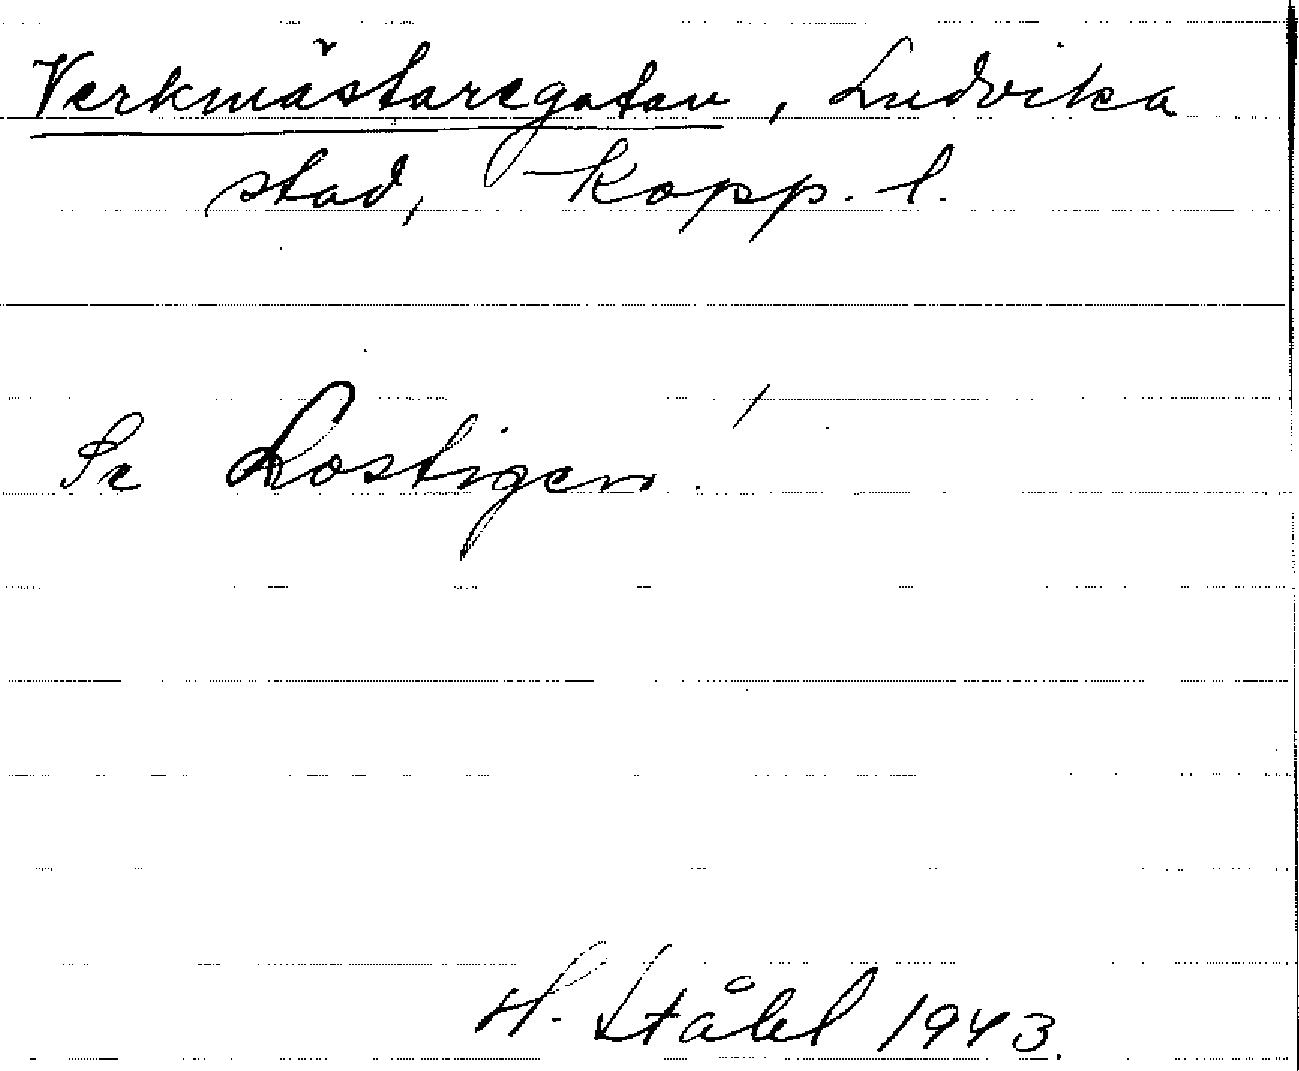 Verkmästaregatan, Ludvika
stad, Kopp. l.
Se Lostigen!
H. Ståhl 1943.